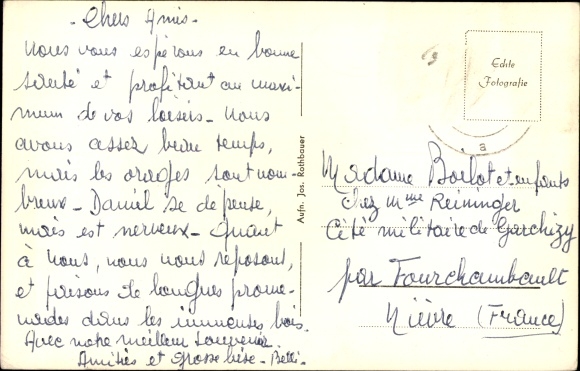 - Chers Amis -
Nous vous espérons en bonne
santé et profitant au maxi-
mum de vos loisirs - Nous
avons assez beau temps,
mais les orages sont nom-
breux - Daniel se dépense,
mais est nerveux - Quant
à nous, nous nous reposons,
et faisons de longues prome-
nades dans les immenses bois.
Avec notre meilleur souvenir.
Amitiés et grosse bise -
Aufn. Jos. Rothbauer
Echte
Fotografie
a
Madame Borlot et enfants
Chez Mme Reininger
Cité militaire de Garchizy
par Fourchambault
Nièvre (France)